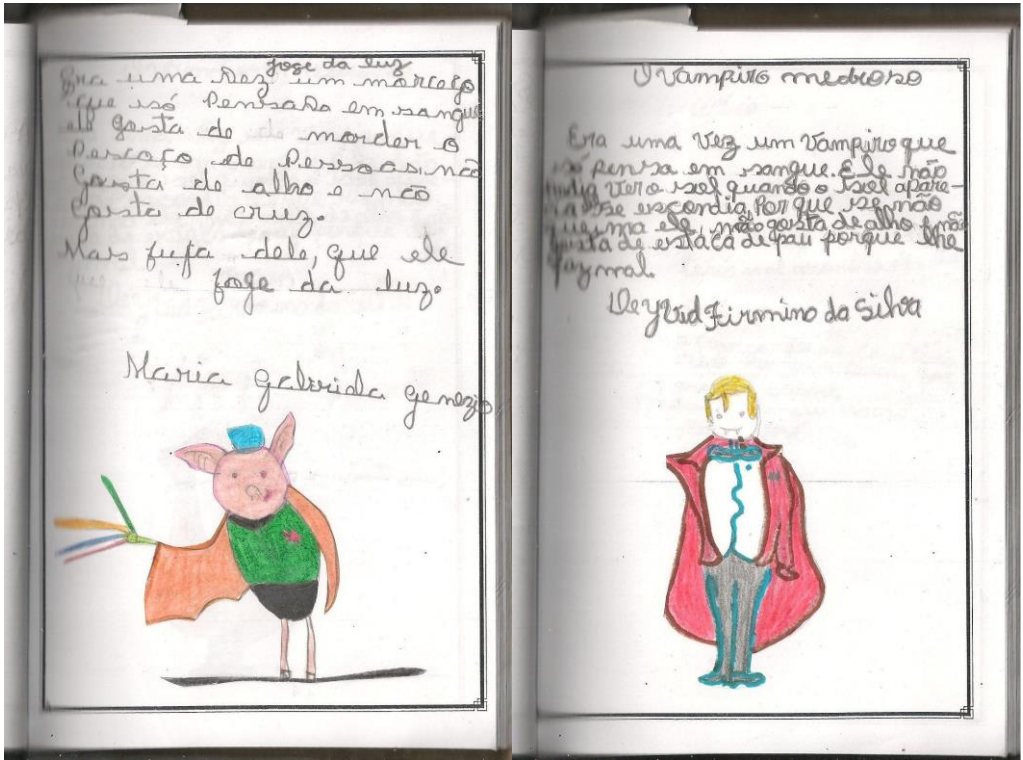 foge da luz
Era uma vez um morcego
que só pensado em sangue
ele gosta de morder o
pescoço de pessoas, não
gosta de alho e não
gosta de cruz.
Mas fuja dele, que ele
foge da luz.
Maria Gabriela Genezio
O Vampiro medroso
Era uma vez um Vampiro que
só pensa em sangue. Ele não
ver o sol quando o sol apare-
se escondia, Porque se não
queima ele, não gosta de alho e não
gosta de estaca de pau porque lhe
faz mal.
Deyvid Firmino da Silva